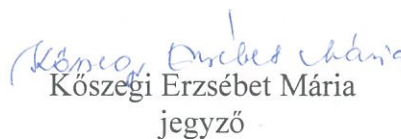 Kőszegi Erzsébet Mária
Kőszegi Erzsébet Mária
jegyző